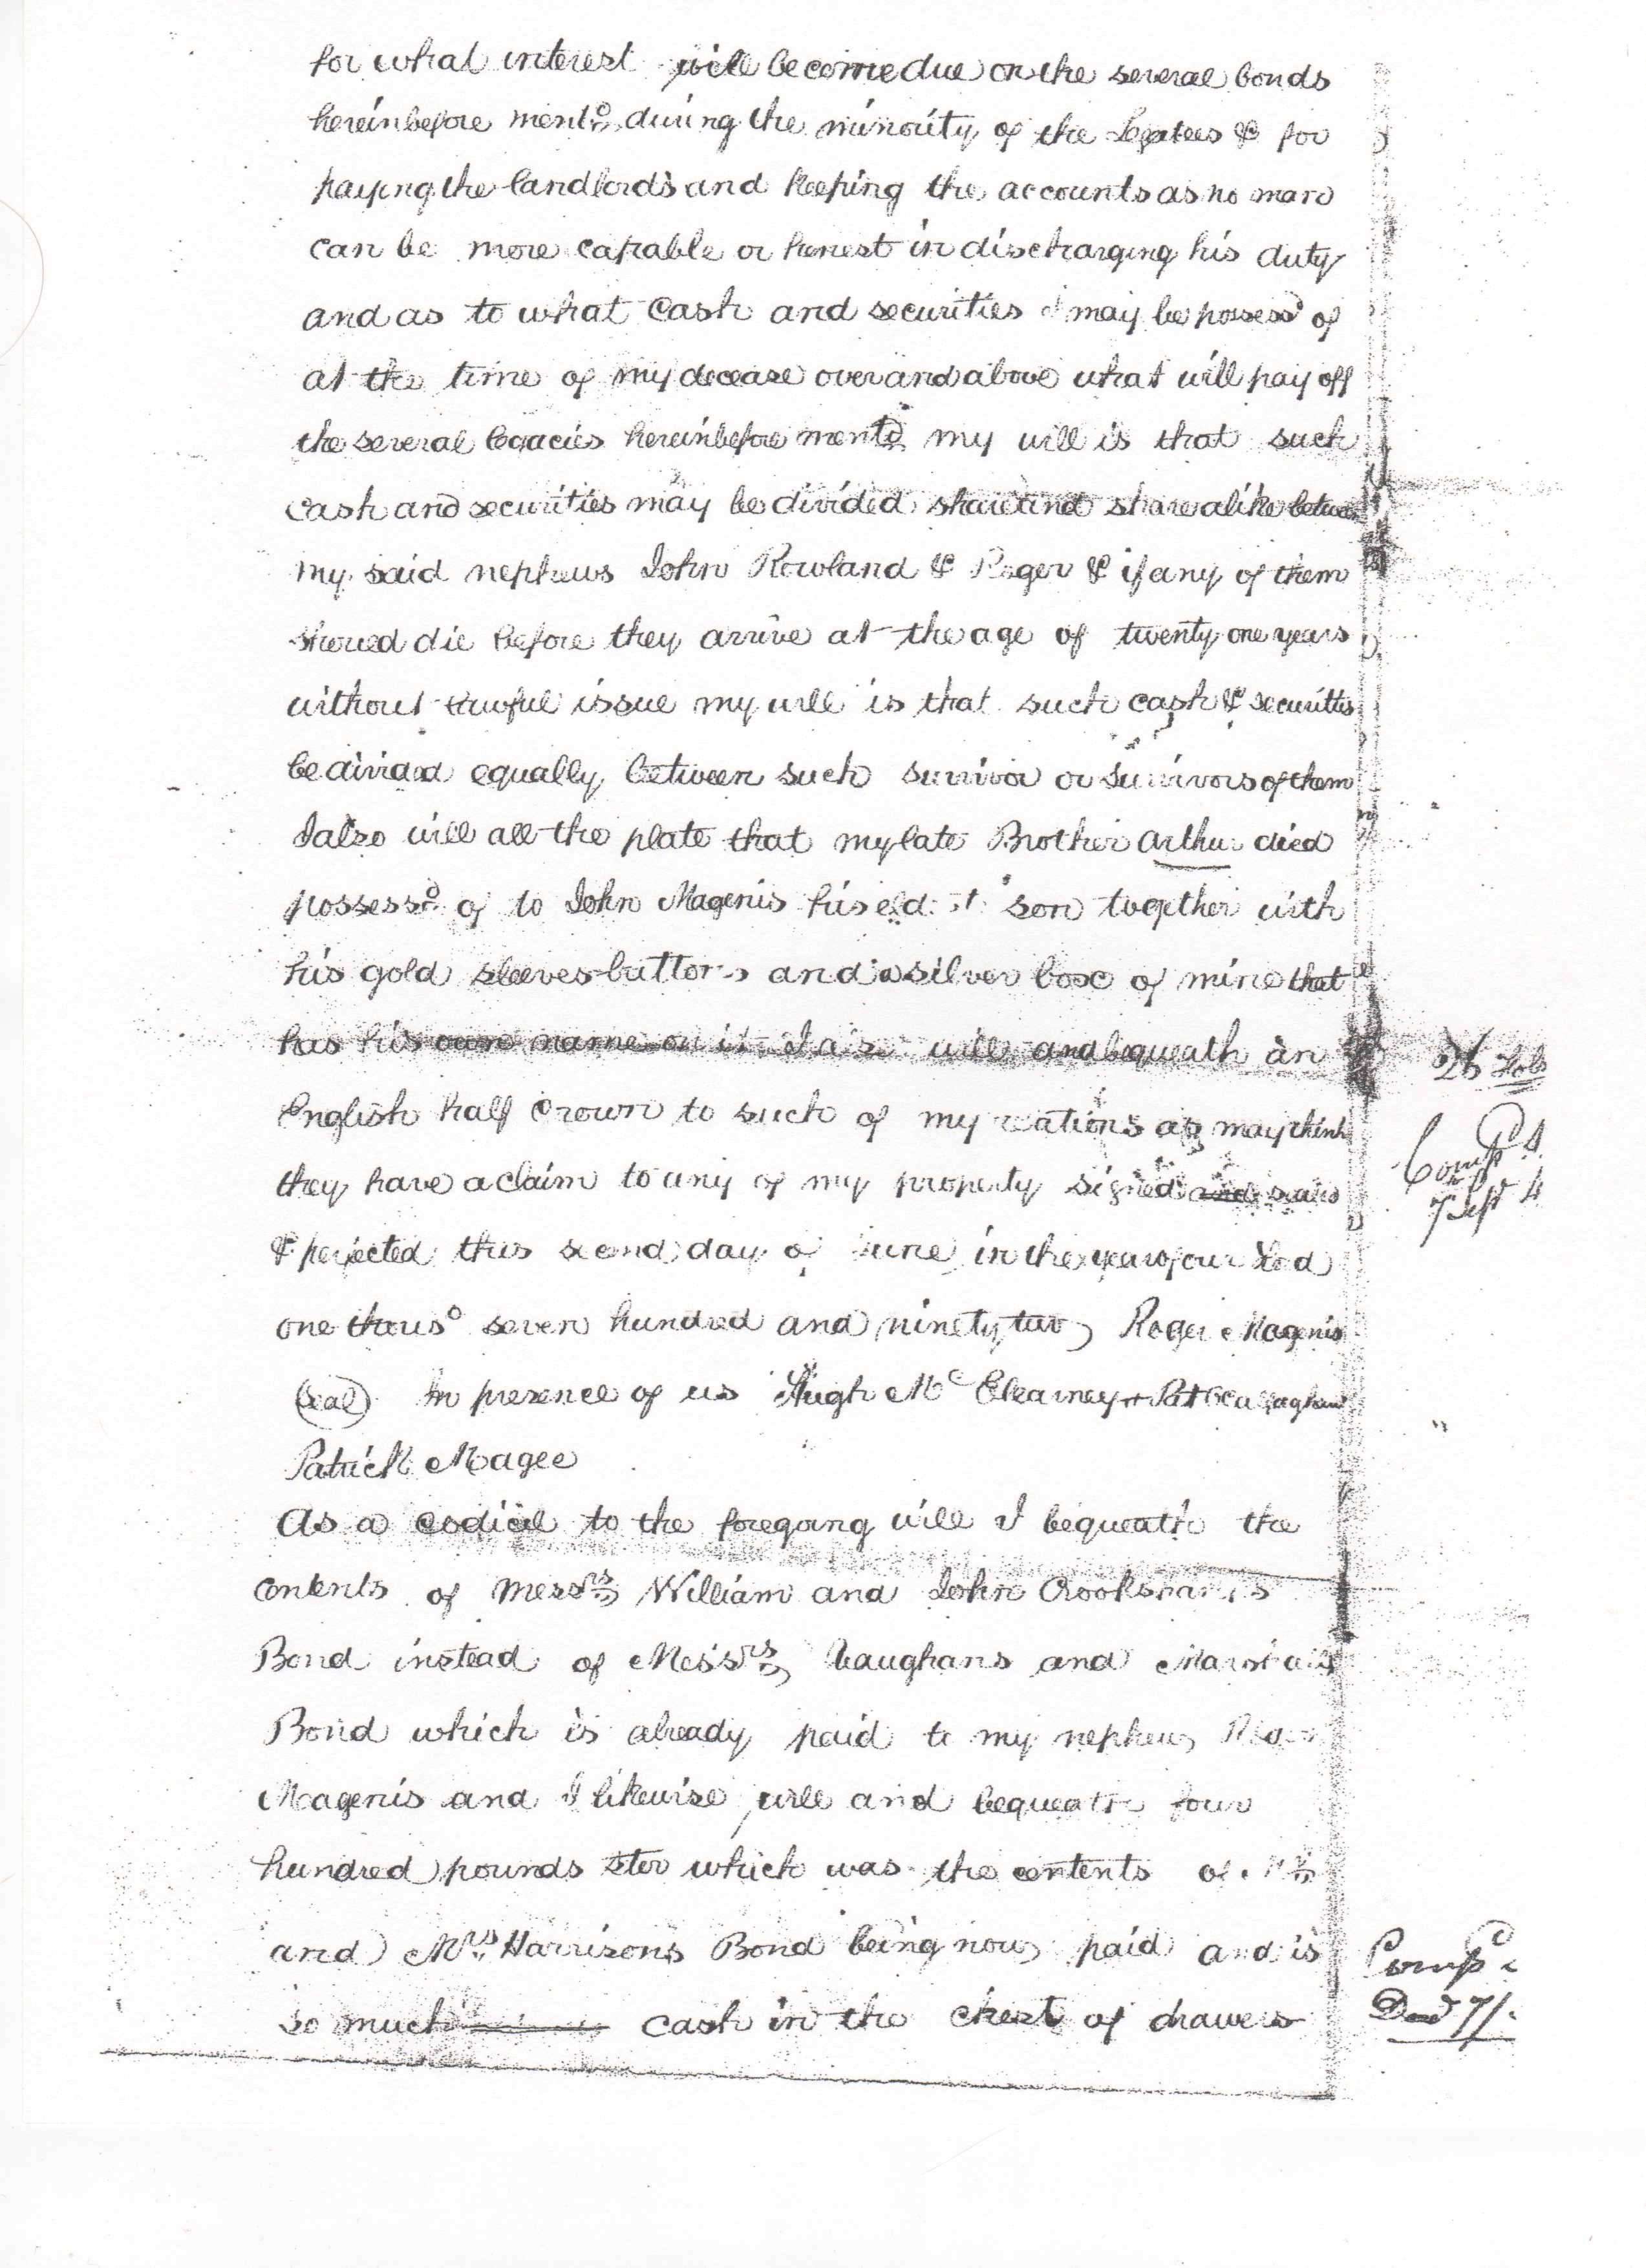 for what interest will become due on the several bonds
hereinbefore mentd. during the minority of the Legatees & for
paying the landlords and keeping the accounts as no man
can be more capable or honest in discharging his duty
and as to what Cash and securities I may be possessd of
at the time of my decease over and above what will pay off
the several legacies hereinbefore mentd. my will is that such
Cash and securities may be divided share and share alike between
my said nephews John Rowland & Roger & if any of them
should die before they arrive at the age of twenty one years
without lawful issue my will is that such cash & securities
be divided equally between such survivor or survivors of them
I also will all the plate that my late Brother Arthur died
possessd. of to John Magenis his eldest son together with
his gold sleeves buttons and a silver box of mine that
has his own name on it I also will and bequeath an
English half Crown to such of my relations as may think
they have a claim to any of my property signed and seald
& perfected this second day of June in the year of our Lord
one thousd seven hundred and ninety two, Roger Magenis
(Seal) In presence of us Hugh Mc Elearney + Pat OCallaghan
Patrick Magee
As a codicil to the foregoing will I bequeath the
contents of Messrs. William and John Crookshanks
Bond instead of Messrs. Vaughans and
Bond which is already paid to my nephew Roger
Magenis and I likewise will and bequeath four
hundred pounds ster which was the contents of Mr.
and Mrs. Harrisons Bond being now paid and is
so much cash in the chest of drawers
26 Fols
Compd
7 Sept
Compd